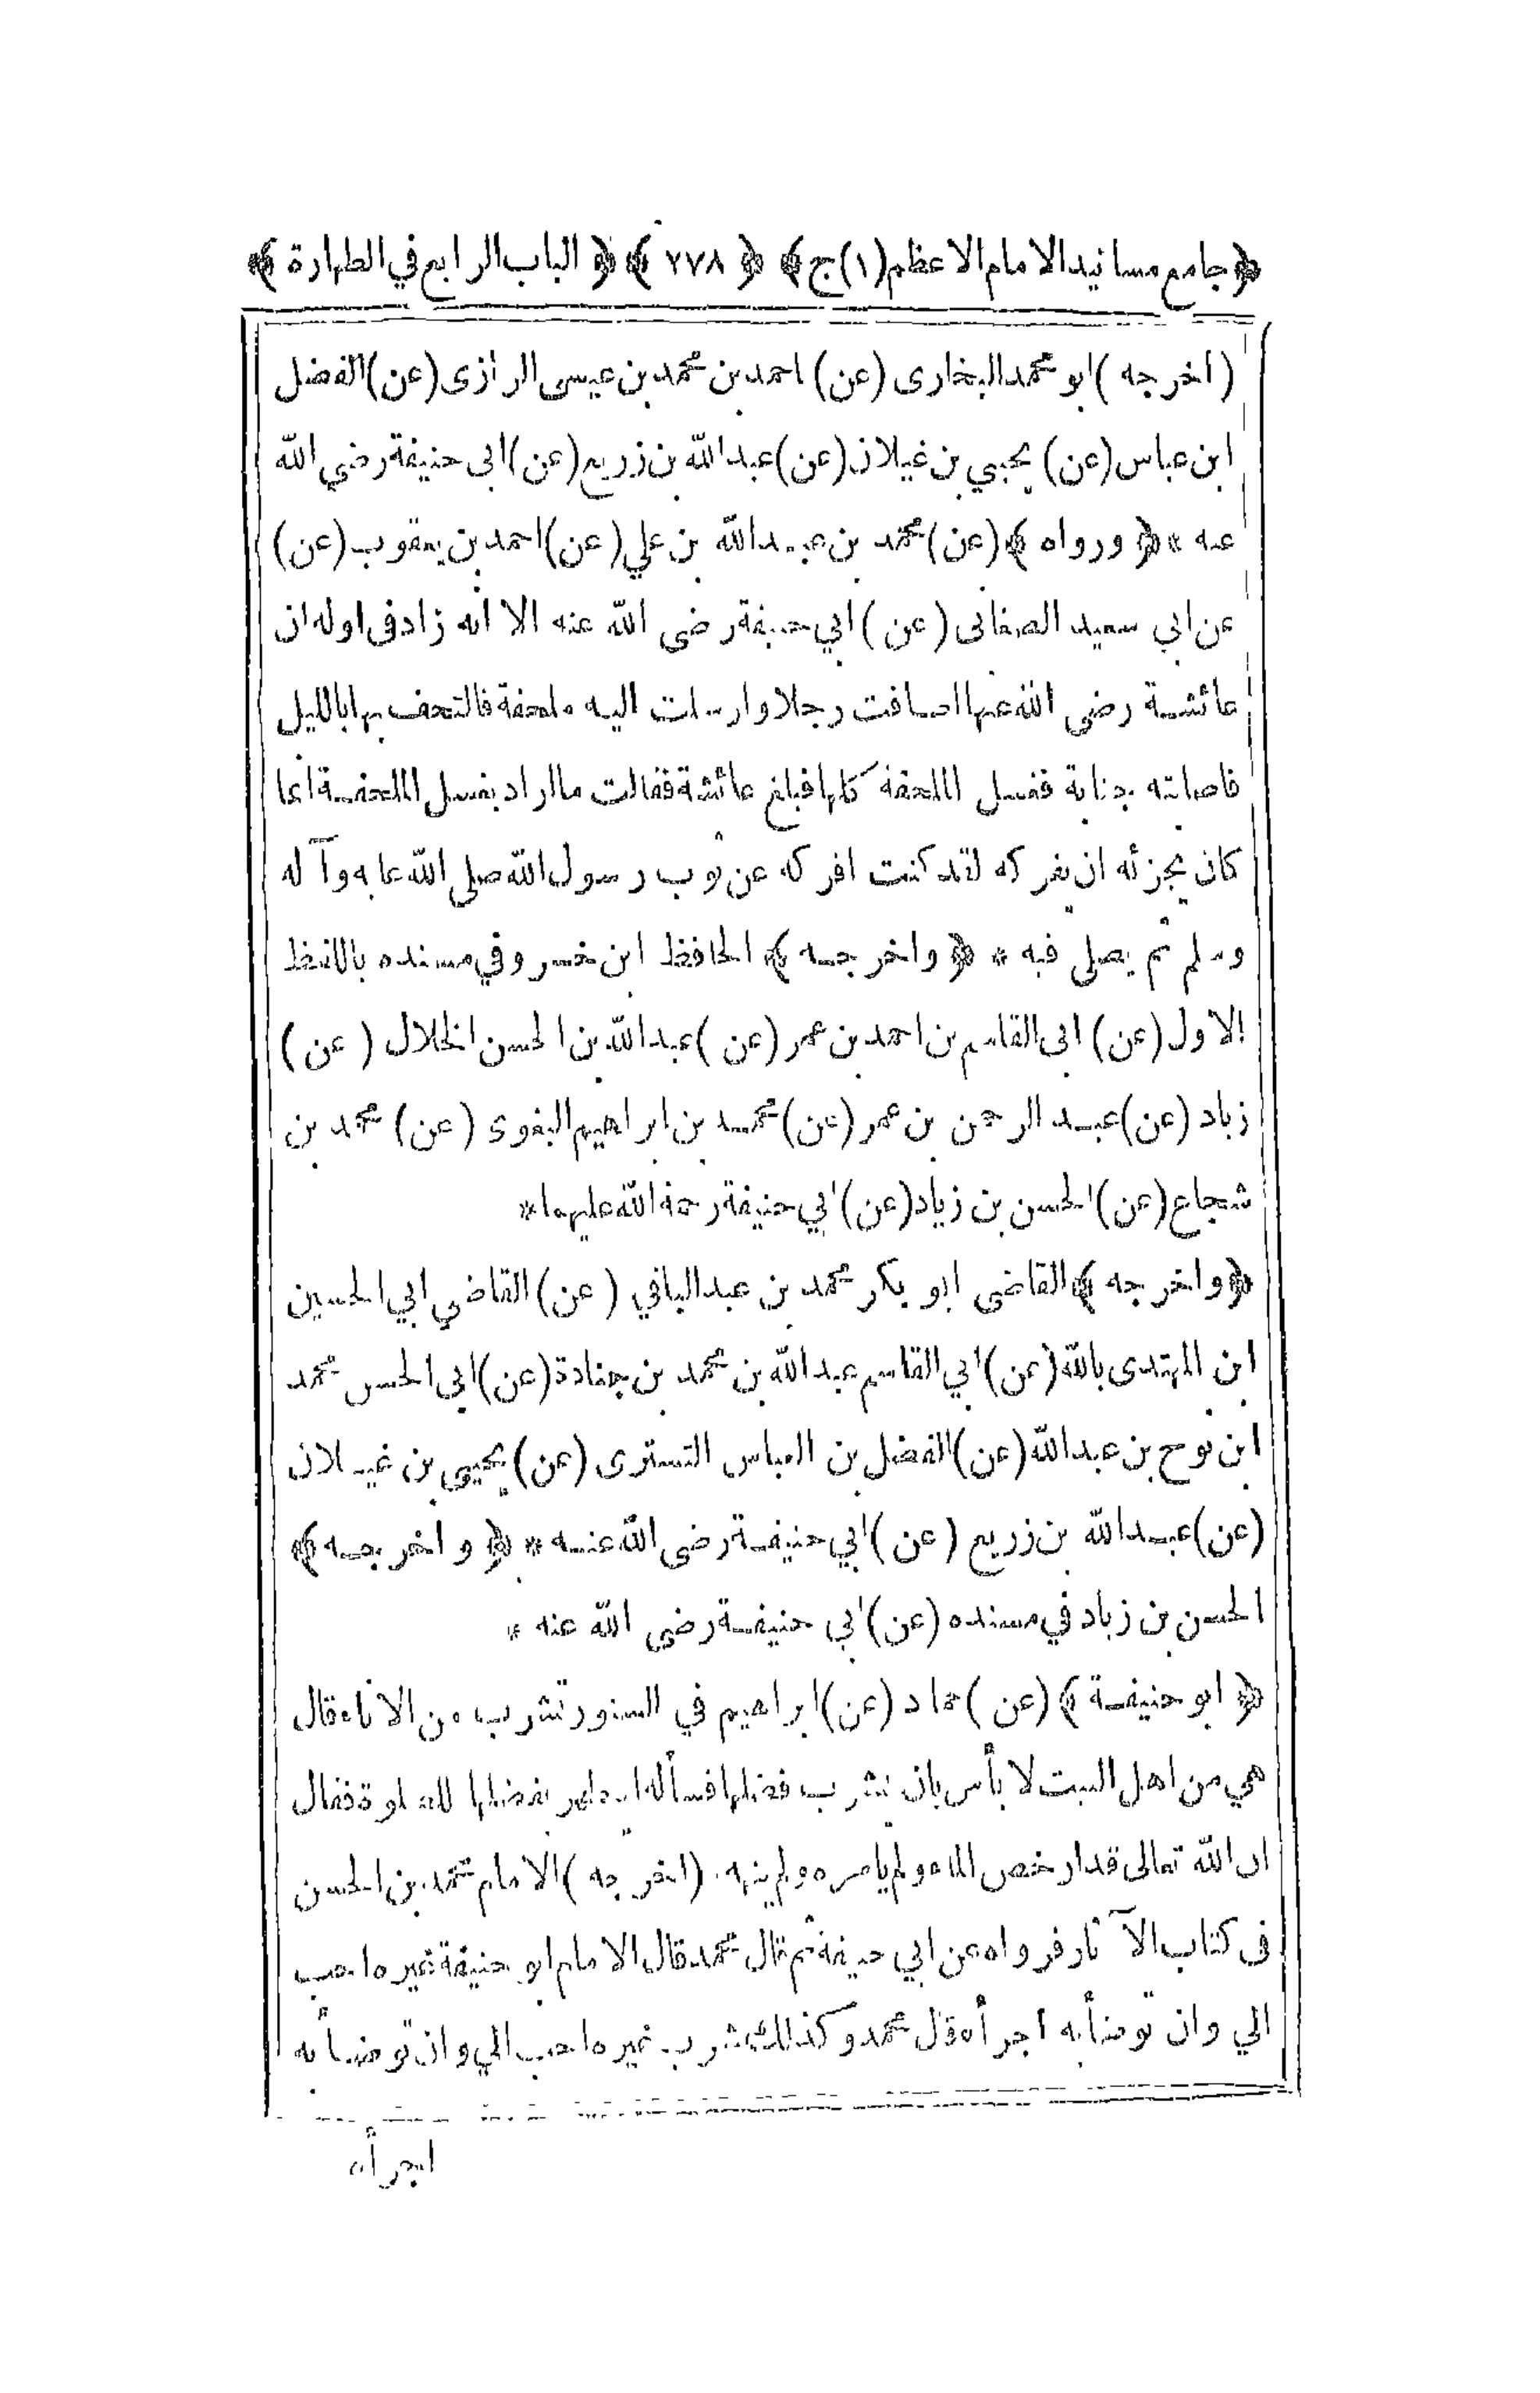 ﴿جامع مسانيد الامام الاعظم(١)ج﴾ ﴿٢٧٨﴾ ﴿الباب الرابع في الطهارة﴾
(اخرجه) ابو محمد البخارى (عن) احمد بن محمد بن عيسى الرازى (عن) الفضل
ابن عباس (عن) يحيى بن غيلان (عن) عبد الله بن زريع (عن) ابى حنيفة رضي الله
عنه * ﴿ورواه﴾ (عن) محمد بن عبد الله بن علي (عن) احمد بن يعقوب (عن)
عن ابي سعيد الصغانى (عن) ابي حنيفة رضى الله عنه الا انه زاد فى اوله ان
عائشة رضى الله عنها اضافت رجلا وارسلت اليه ملحفة فالتحف بها بالليل
فاصابته جنابة فغسل الملحفة كلها فبلغ عائشة فقالت ما اراد بغسل الملحفة انما
كان يجزئه ان يفركه لقد كنت افركه عن ثوب رسول الله صلى الله عليه وآله
وسلم ثم يصلى فيه * ﴿واخرجه﴾ الحافظ ابن خسرو في مسنده باللفظ
الاول (عن) ابى القاسم بن احمد بن عمر (عن) عبد الله بن الحسن الخلال (عن)
زياد (عن) عبد الرحمن بن عمر (عن) محمد بن ابراهيم البغوى (عن) محمد بن
شجاع (عن) الحسن بن زياد (عن) ابي حنيفة رحمة الله عليهما *
﴿واخرجه﴾ القاضى ابو بكر محمد بن عبد الباقي (عن) القاضي ابي الحسين
ابن المهتدى بالله (عن) ابي القاسم عبد الله بن محمد بن جنادة (عن) ابى الحسن محمد
ابن نوح بن عبد الله (عن) الفضل بن العباس التسترى (عن) يحيى بن غيلان
(عن) عبد الله بن زريع (عن) ابي حنيفة رضى الله عنه * ﴿واخرجه﴾
الحسن بن زياد في مسنده (عن) ابي حنيفة رضي الله عنه *
﴿ابو حنيفة﴾ (عن) حماد (عن) ابراهيم في السنور تشرب من الاناء قال
هي من اهل البيت لا بأس بان يشرب فضلها فسأله ايتطهر بفضلها للصلوة فقال
ان الله تعالى قد ارخص الماء ولم يامره ولم ينهه . (اخرجه) الامام محمد بن الحسن
فى كتاب الآثار فرواه عن ابي حنيفة ثم قال محمد قال الامام ابو حنيفة غيره احب
الي وان توضأ به اجرأه قال محمد وكذلك شرب غيره احب الي وان توضأ به
اجرأه